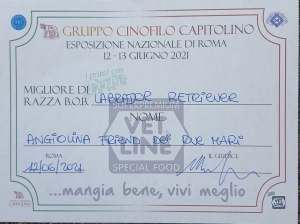 GRUPPO CINOFILO CAPITOLINO
ESPOSIZIONE NAZIONALE DI ROMA
12 - 13 GIUGNO 2021
I primi sono
MIGLIORE DI
RAZZA B.O.B. LABRADOR RETRIEVER
SUPERPREMIUM
NOME
VET LINE
ANGIOLINA FRIEND DEI DUE MARI
ROMA
SPECIAL FOOD
IL GIUDICE
12/06/2021
...mangia bene, vivi meglio